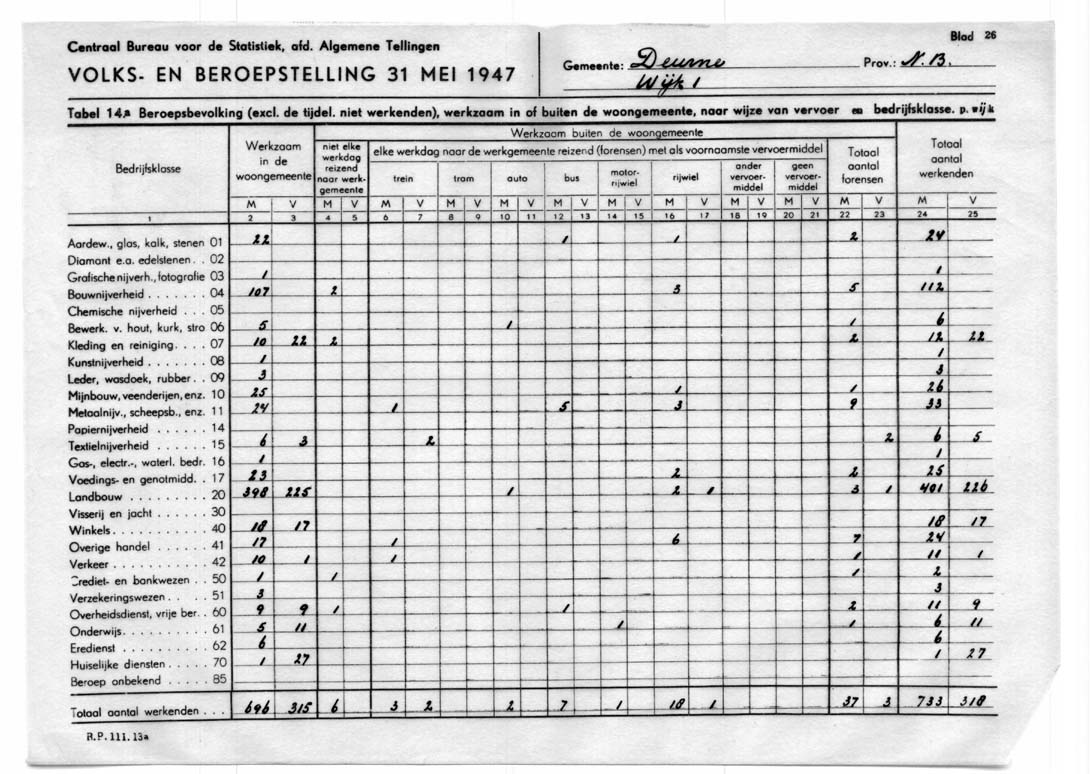 Blad 26
Centraal Bureau voor de Statistiek, afd. Algemene Tellingen
VOLKS- EN BEROEPSTELLING 31 MEI 1947
Gemeente: Deurne Prov.: N.B.
Wijk 1
Tabel 14a Beroepsbevolking (excl. de tijdel. niet werkenden), werkzaam in of buiten de woongemeente, naar wijze van vervoer en bedrijfsklasse. p. wijk
Bedrijfsklasse
Werkzaam in de woongemeente
Werkzaam buiten de woongemeente
niet elke werkdag reizend naar werkgemeente
elke werkdag naar de werkgemeente reizend (forensen) met als voornaamste vervoermiddel
trein tram auto bus motorrijwiel rijwiel ander vervoermiddel geen vervoermiddel
Totaal aantal forensen
Totaal aantal werkenden
M V M V M V M V M V M V M V M V M V M V M V M V
1 2 3 4 5 6 7 8 9 10 11 12 13 14 15 16 17 18 19 20 21 22 23 24 25
Aardew., glas, kalk, stenen 01 22 1 1 2 24
Diamant e.a. edelstenen . . 02
Grafische nijverh., fotografie 03 1 1
Bouwnijverheid . . . . . . . 04 107 2 3 5 112
Chemische nijverheid . . . 05
Bewerk. v. hout, kurk, stro 06 5 1 1 6
Kleding en reiniging. . . . 07 10 22 2 2 12 22
Kunstnijverheid . . . . . . . 08 1 1
Leder, wasdoek, rubber . . 09 3 3
Mijnbouw, veenderijen, enz. 10 25 1 1 26
Metaalnijv., scheepsb., enz. 11 24 1 5 3 9 33
Papiernijverheid . . . . . . 14
Textielnijverheid . . . . . . 15 6 3 2 2 6 5
Gas-, electr.-, waterl. bedr. 16 1 1
Voedings- en genotmidd. . 17 23 2 2 25
Landbouw . . . . . . . . . 20 398 225 1 2 1 3 1 401 226
Visserij en jacht . . . . . . 30
Winkels . . . . . . . . . . 40 18 17 18 17
Overige handel . . . . . . 41 17 1 6 7 24
Verkeer . . . . . . . . . . 42 10 1 1 1 11 1
Crediet- en bankwezen . . 50 1 1 1 2
Verzekeringswezen . . . . 51 3 3
Overheidsdienst, vrije ber. . 60 9 9 1 1 2 11 9
Onderwijs. . . . . . . . . . 61 5 11 1 1 6 11
Eredienst . . . . . . . . . 62 6 6
Huiselijke diensten . . . . . 70 1 27 1 27
Beroep onbekend . . . . . 85
Totaal aantal werkenden . . . 696 315 6 3 2 2 7 1 18 1 37 3 733 318
R.P. 111. 13a